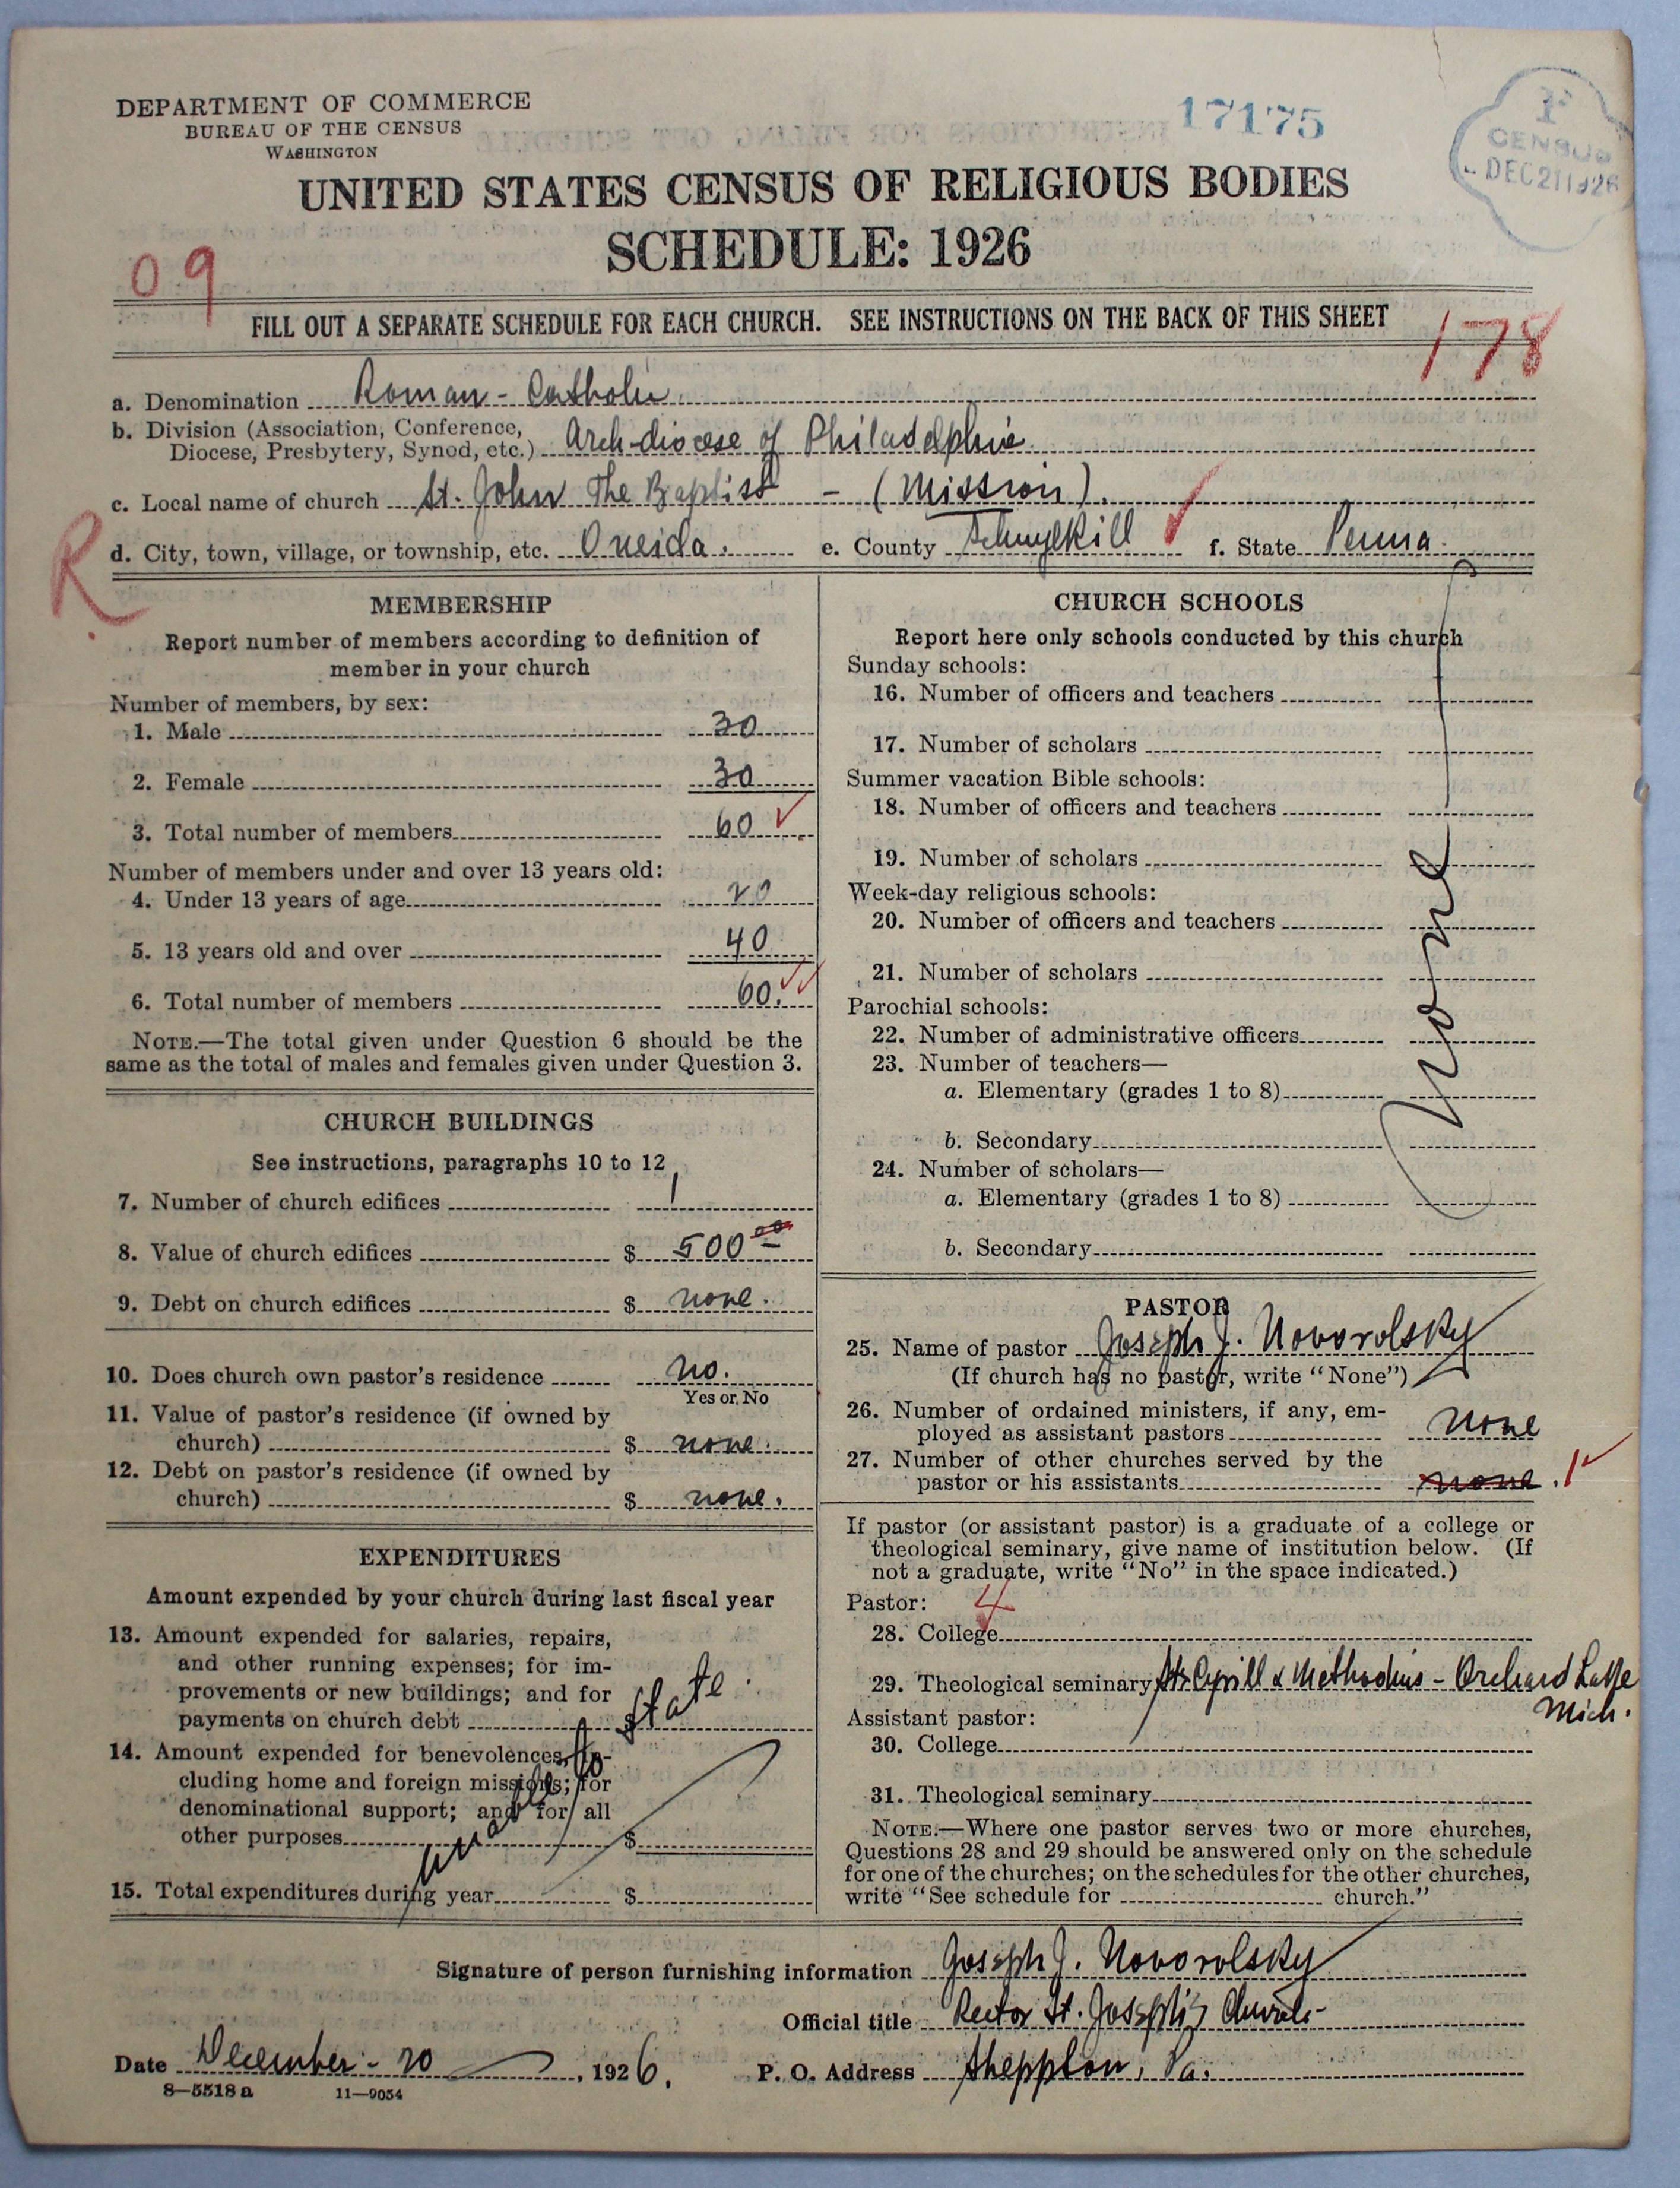 DEPARTMENT OF COMMERCE
BUREAU OF THE CENSUS
WASHINGTON
17175
CENSUS
DEC 21 1926
UNITED STATES CENSUS OF RELIGIOUS BODIES
SCHEDULE: 1926
09
FILL OUT A SEPARATE SCHEDULE FOR EACH CHURCH. SEE INSTRUCTIONS ON THE BACK OF THIS SHEET
178
a. Denomination Roman - Catholic
b. Division (Association, Conference,
Diocese, Presbytery, Synod, etc.) Arch-diocese of Philadelphia.
c. Local name of church St. John The Baptist - (Mission).
R
d. City, town, village, or township, etc. Oneida. e. County Schuylkill f. State Penna.
MEMBERSHIP
Report number of members according to definition of
member in your church
Number of members, by sex:
1. Male 30
2. Female 30
3. Total number of members 60
Number of members under and over 13 years old:
4. Under 13 years of age 20
5. 13 years old and over 40
6. Total number of members 60.
NOTE.—The total given under Question 6 should be the
same as the total of males and females given under Question 3.
CHURCH BUILDINGS
See instructions, paragraphs 10 to 12
7. Number of church edifices 1
8. Value of church edifices $ 500 00
9. Debt on church edifices $ none.
10. Does church own pastor's residence no.
Yes or No
11. Value of pastor's residence (if owned by
church) $ none.
12. Debt on pastor's residence (if owned by
church) $ none.
EXPENDITURES
Amount expended by your church during last fiscal year
13. Amount expended for salaries, repairs,
and other running expenses; for im-
provements or new buildings; and for
payments on church debt $
14. Amount expended for benevolences, in-
cluding home and foreign missions; for
denominational support; and for all
other purposes $
15. Total expenditures during year $
unable to state.
CHURCH SCHOOLS
Report here only schools conducted by this church
Sunday schools:
16. Number of officers and teachers
17. Number of scholars
Summer vacation Bible schools:
18. Number of officers and teachers
19. Number of scholars
Week-day religious schools:
20. Number of officers and teachers
21. Number of scholars
Parochial schools:
22. Number of administrative officers
23. Number of teachers—
a. Elementary (grades 1 to 8)
b. Secondary
24. Number of scholars—
a. Elementary (grades 1 to 8)
b. Secondary
None
PASTOR
25. Name of pastor Joseph J. Novorolsky
(If church has no pastor, write "None")
26. Number of ordained ministers, if any, em-
ployed as assistant pastors none
27. Number of other churches served by the
pastor or his assistants none. 1
If pastor (or assistant pastor) is a graduate of a college or
theological seminary, give name of institution below. (If
not a graduate, write "No" in the space indicated.)
Pastor: 4
28. College
29. Theological seminary Sts Cyrill & Methodius - Orchard Lake
Mich.
Assistant pastor:
30. College
31. Theological seminary
NOTE.—Where one pastor serves two or more churches,
Questions 28 and 29 should be answered only on the schedule
for one of the churches; on the schedules for the other churches,
write "See schedule for church."
Signature of person furnishing information Joseph J. Novorolsky
Official title Rector St. Joseph's Church
Date December - 20, 1926. P. O. Address Sheppton, Pa.
8—5518 a 11—9054